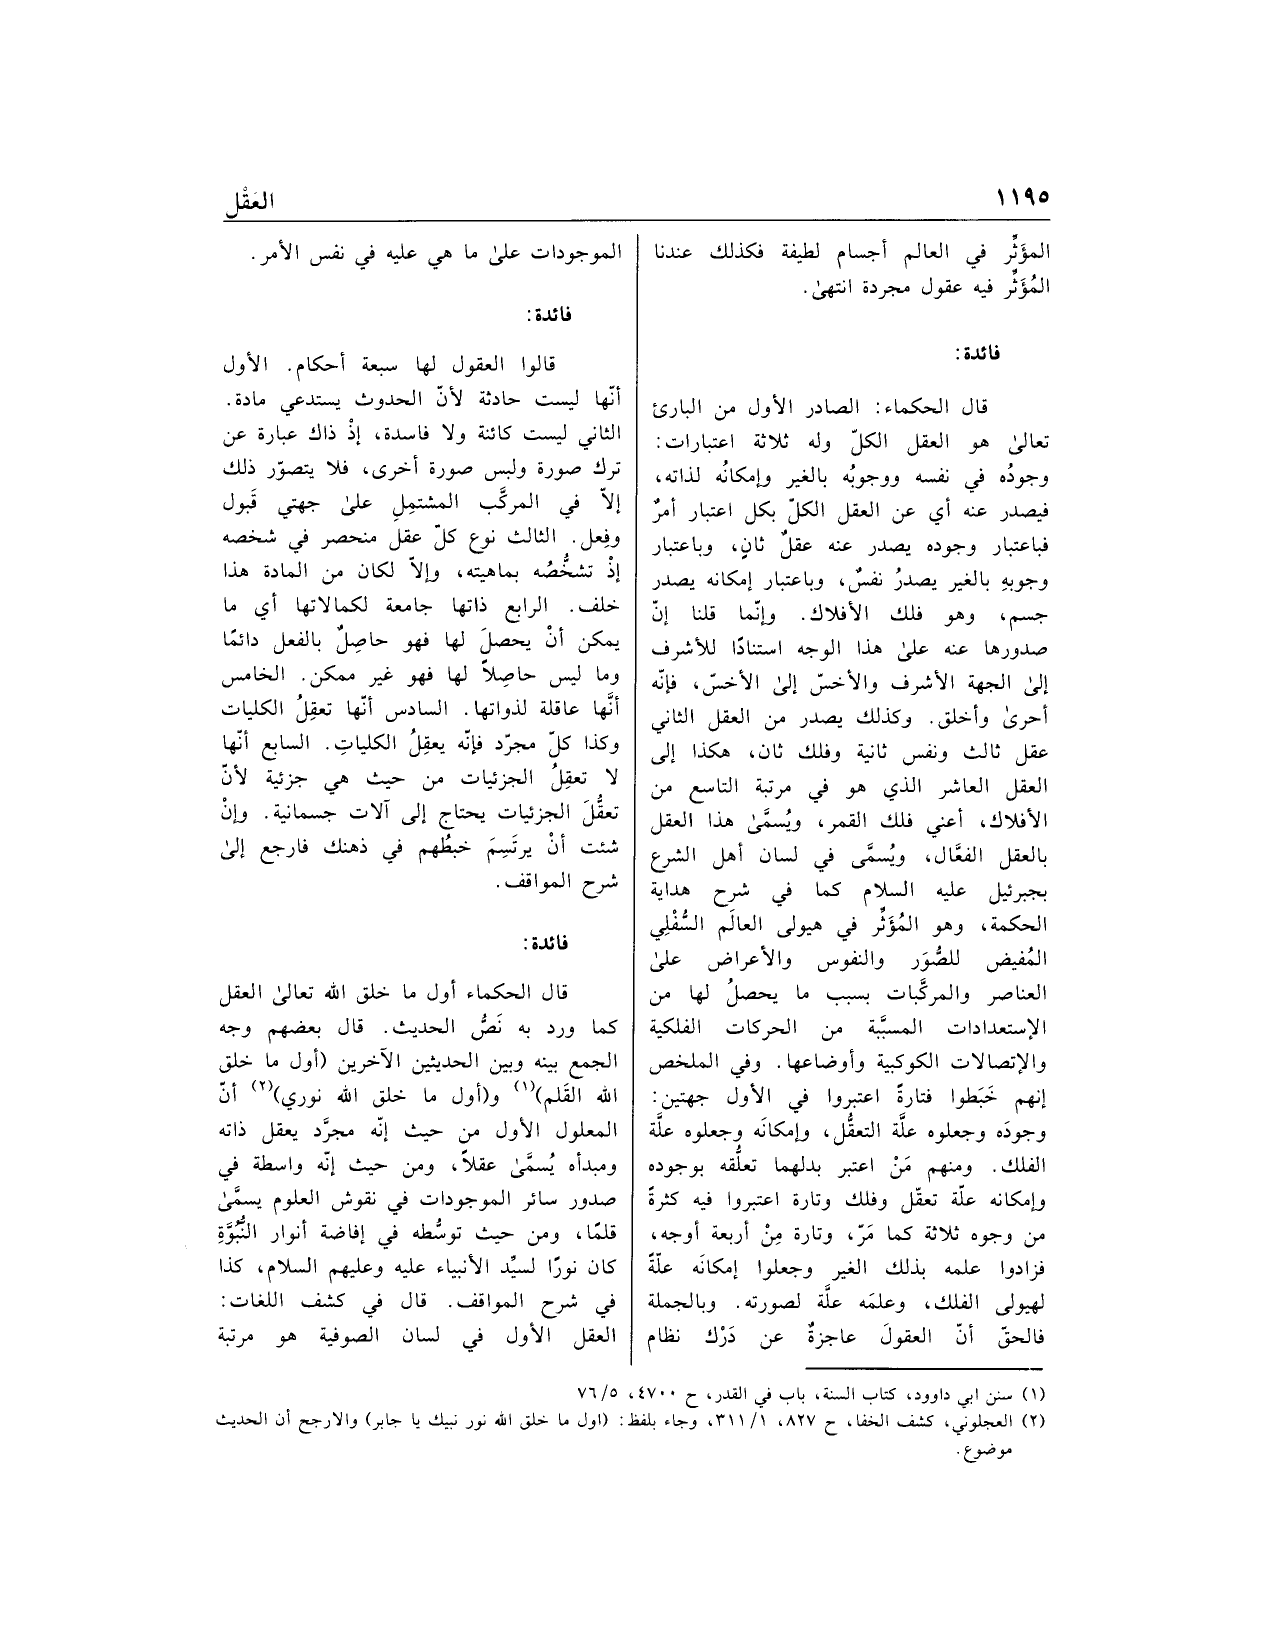 ١١٩٥
العَقْل
المؤَثِّر في العالم أجسام لطيفة فكذلك عندنا
المُؤَثِّر فيه عقول مجردة انتهىٰ.
فائدة:
قال الحكماء: الصادر الأول من البارئ
تعالىٰ هو العقل الكلّ وله ثلاثة اعتبارات:
وجودُه في نفسه ووجوبُه بالغير وإمكانُه لذاته،
فيصدر عنه أي عن العقل الكلّ بكل اعتبار أمرٌ
فباعتبار وجوده يصدر عنه عقلٌ ثانٍ، وباعتبار
وجوبهِ بالغير يصدرُ نفسٌ، وباعتبار إمكانه يصدر
جسم، وهو فلك الأفلاك. وإنّما قلنا إنّ
صدورها عنه علىٰ هذا الوجه استنادًا للأشرف
إلىٰ الجهة الأشرف والأخسّ إلىٰ الأخسّ، فإنّه
أحرىٰ وأخلق. وكذلك يصدر من العقل الثاني
عقل ثالث ونفس ثانية وفلك ثان، هكذا إلى
العقل العاشر الذي هو في مرتبة التاسع من
الأفلاك، أعني فلك القمر، ويُسمَّىٰ هذا العقل
بالعقل الفعَّال، ويُسمَّى في لسان أهل الشرع
بجبرئيل عليه السلام كما في شرح هداية
الحكمة، وهو المُؤَثِّر في هيولى العالَم السُّفْلِي
المُفيض للصُّوَر والنفوس والأعراض علىٰ
العناصر والمركَّبات بسبب ما يحصلُ لها من
الإستعدادات المسبَّبة من الحركات الفلكية
والإتصالات الكوكبية وأوضاعها. وفي الملخص
إنهم خَبَطوا فتارةً اعتبروا في الأول جهتين:
وجودَه وجعلوه علَّة التعقُّل، وإمكانَه وجعلوه علَّة
الفلك. ومنهم مَنْ اعتبر بدلهما تعلُّقه بوجوده
وإمكانه علّة تعقّل وفلك وتارة اعتبروا فيه كثرةً
من وجوه ثلاثة كما مَرّ، وتارة مِنْ أربعة أوجه،
فزادوا علمه بذلك الغير وجعلوا إمكانَه علّةً
لهيولى الفلك، وعلمَه علَّة لصورته. وبالجملة
فالحقّ أنّ العقولَ عاجزةٌ عن دَرْك نظام
الموجودات علىٰ ما هي عليه في نفس الأمر.
فائدة:
قالوا العقول لها سبعة أحكام. الأول
أنّها ليست حادثة لأنّ الحدوث يستدعي مادة.
الثاني ليست كائنة ولا فاسدة، إذْ ذاك عبارة عن
ترك صورة ولبس صورة أخرى، فلا يتصوّر ذلك
إلاّ في المركَّب المشتملِ علىٰ جهتي قَبول
وفِعل. الثالث نوع كلّ عقل منحصر في شخصه
إذْ تشخُّصُه بماهيته، وإلاّ لكان من المادة هذا
خلف. الرابع ذاتها جامعة لكمالاتها أي ما
يمكن أنْ يحصلَ لها فهو حاصِلٌ بالفعل دائمًا
وما ليس حاصِلاً لها فهو غير ممكن. الخامس
أنَّها عاقلة لذواتها. السادس أنّها تعقِلُ الكليات
وكذا كلّ مجرّد فإنّه يعقِلُ الكلياتِ. السابع أنّها
لا تعقِلُ الجزئيات من حيث هي جزئية لأنّ
تعقُّلَ الجزئيات يحتاج إلى آلات جسمانية. وإنْ
شئت أنْ يرتَسِمَ خبطُهم في ذهنك فارجع إلىٰ
شرح المواقف.
فائدة:
قال الحكماء أول ما خلق الله تعالىٰ العقل
كما ورد به نَصُّ الحديث. قال بعضهم وجه
الجمع بينه وبين الحديثين الآخرين (أول ما خلق
الله القَلم)(١) و(أول ما خلق الله نوري)(٢) أنّ
المعلول الأول من حيث إنّه مجرَّد يعقل ذاته
ومبدأه يُسمَّىٰ عقلاً، ومن حيث إنّه واسطة في
صدور سائر الموجودات في نقوش العلوم يسمَّىٰ
قلمًا، ومن حيث توسُّطه في إفاضة أنوار النُّبُوَّةِ
كان نورًا لسيِّد الأنبياء عليه وعليهم السلام، كذا
في شرح المواقف. قال في كشف اللغات:
العقل الأول في لسان الصوفية هو مرتبة
(١) سنن ابي داوود، كتاب السنة، باب في القدر، ح ٤٧٠٠، ٧٦/٥
(٢) العجلوني، كشف الخفا، ح ٨٢٧، ٣١١/١، وجاء بلفظ: (اول ما خلق الله نور نبيك يا جابر) والارجح أن الحديث
موضوع.